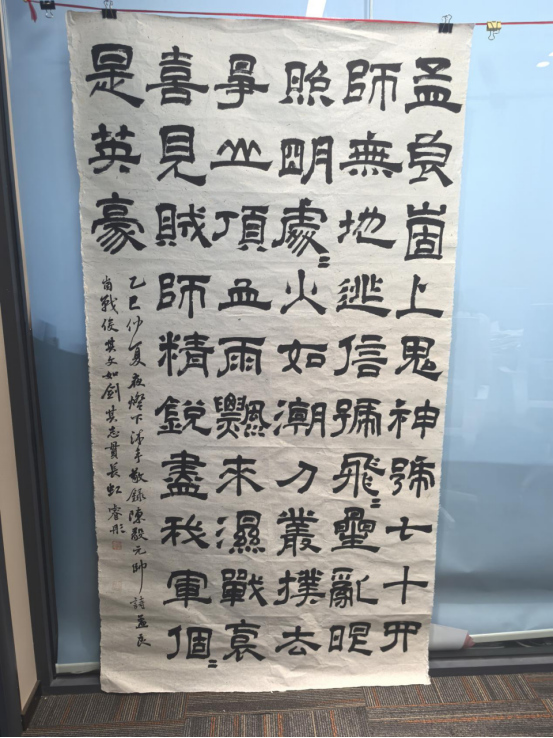 孟良崮上鬼神號七十四
師無地逃信號飛〻曐亂眼
照明處〻火如潮刀叢撲去
爭山頂血雨飄來濕戰袍
喜見賊師精鋭盡我軍個〻
是英豪
乙巳仲夏夜燈下沐手敬錄陳毅元帥詩孟良
崮戰役其文如劍其志貫長虹睿彤